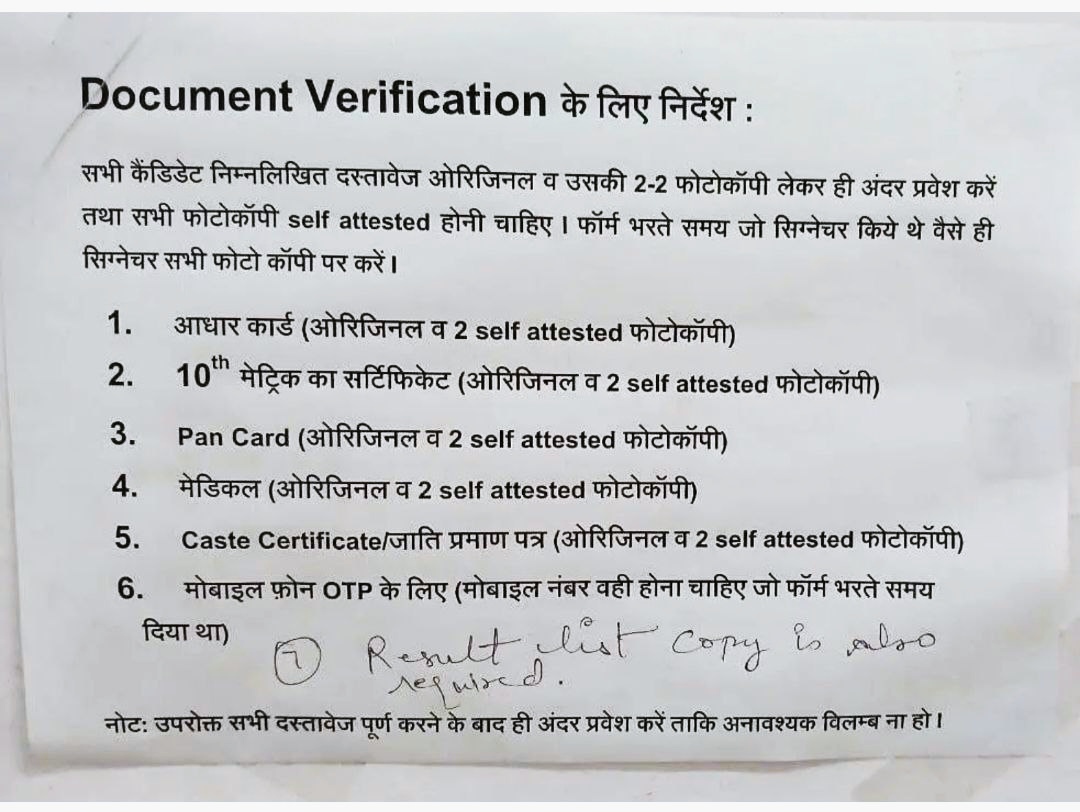 Document Verification के लिए निर्देश :
सभी कैंडिडेट निम्नलिखित दस्तावेज ओरिजिनल व उसकी 2-2 फोटोकॉपी लेकर ही अंदर प्रवेश करें
तथा सभी फोटोकॉपी self attested होनी चाहिए । फॉर्म भरते समय जो सिग्नेचर किये थे वैसे ही
सिग्नेचर सभी फोटो कॉपी पर करें ।
1. आधार कार्ड (ओरिजिनल व 2 self attested फोटोकॉपी)
2. 10th मेट्रिक का सर्टिफिकेट (ओरिजिनल व 2 self attested फोटोकॉपी)
3. Pan Card (ओरिजिनल व 2 self attested फोटोकॉपी)
4. मेडिकल (ओरिजिनल व 2 self attested फोटोकॉपी)
5. Caste Certificate/जाति प्रमाण पत्र (ओरिजिनल व 2 self attested फोटोकॉपी)
6. मोबाइल फ़ोन OTP के लिए (मोबाइल नंबर वही होना चाहिए जो फॉर्म भरते समय
दिया था)
7 Result list copy is also
required.
नोट: उपरोक्त सभी दस्तावेज पूर्ण करने के बाद ही अंदर प्रवेश करें ताकि अनावश्यक विलम्ब ना हो ।